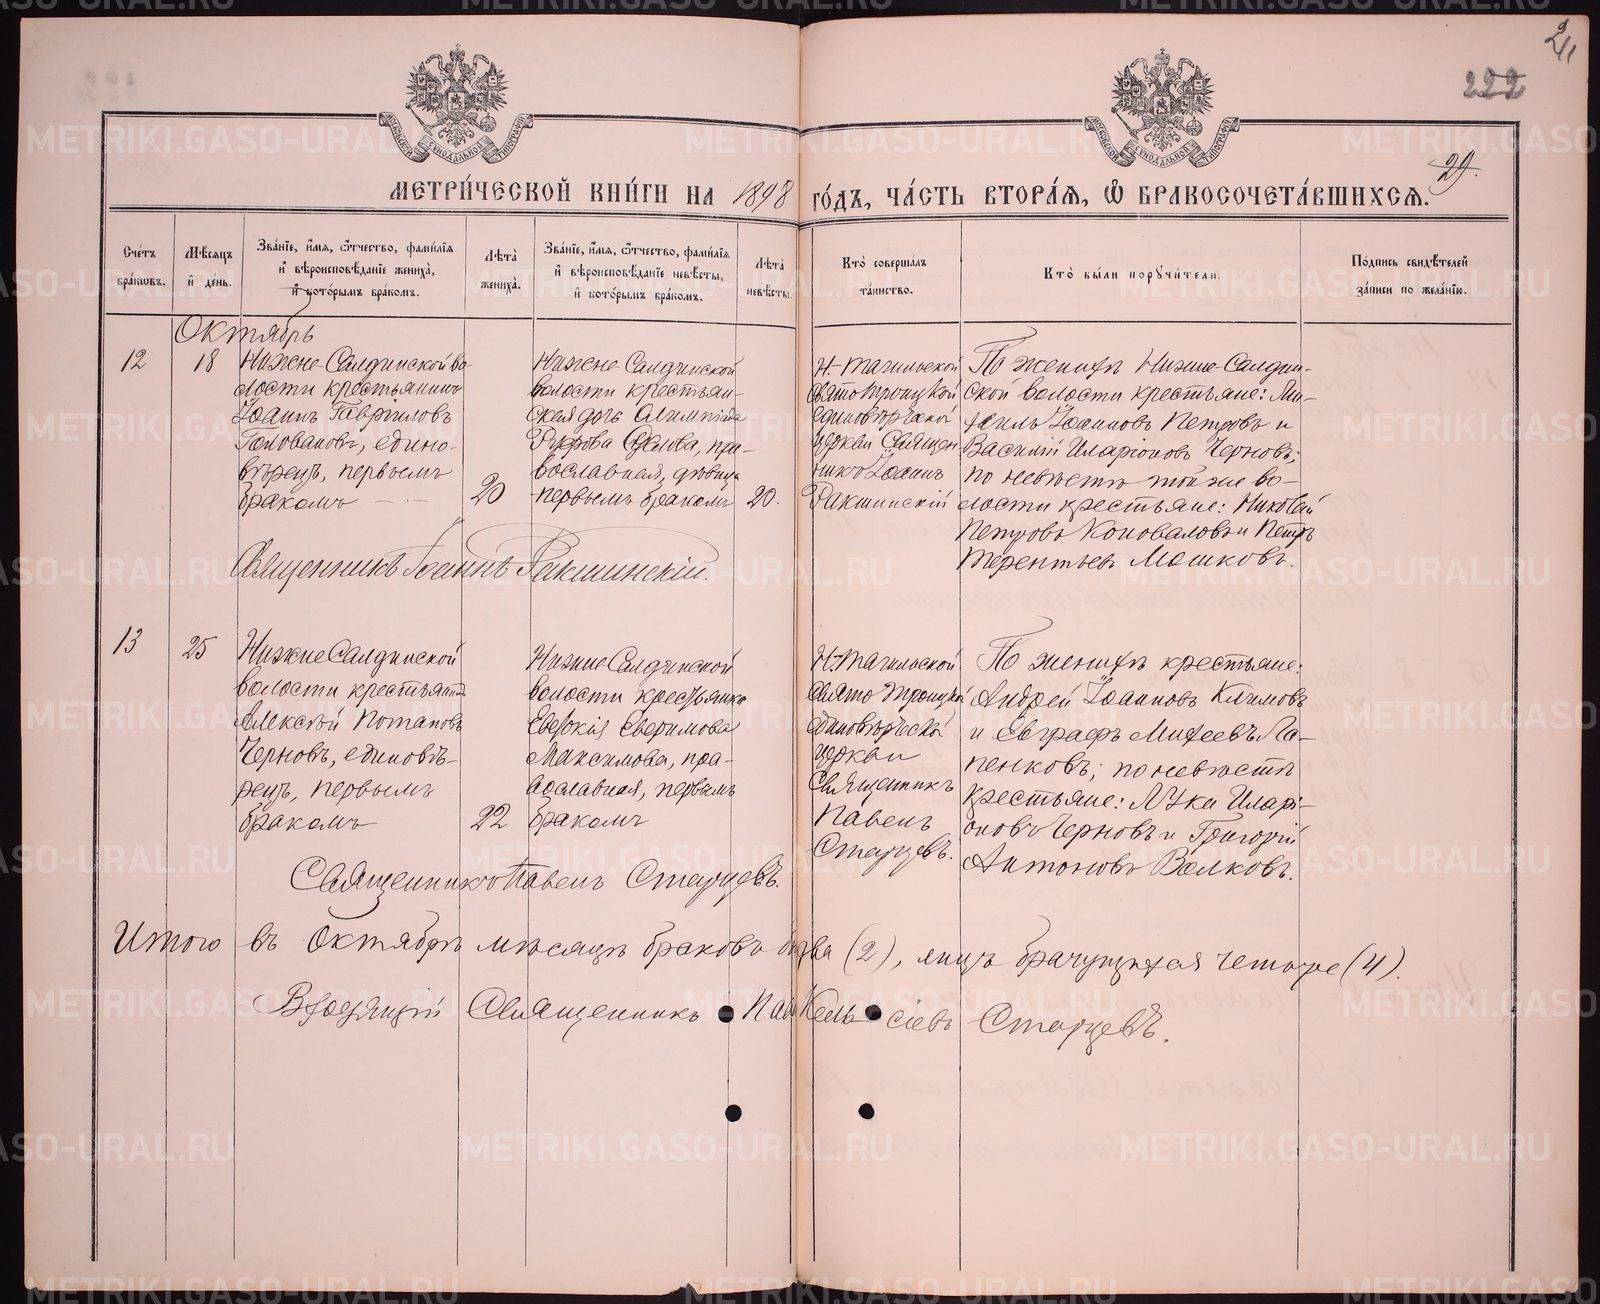 211
222
29.
МЕТРИ́ЧЕСКОЙ КНИ́ГИ НА 1898 ГО́ДЪ, ЧА́СТЬ ВТОРА́Я, Ѡ БРАКОСОЧЕТА́ВШИХСЯ.
Сче́тъ бра́кωвъ.
Мѣ́сяцъ и҆ де́нь.
Зва́нїе, и҆́мя, ѻ҆́тчество, фами́лїя
и҆ вѣроисповѣ́данїе жениха̀,
и҆ кото́рымъ бра́комъ.
Лѣ́та жениха̀.
Зва́нїе, и҆́мя, ѻ҆́тчество, фами́лїя
и҆ вѣроисповѣ́данїе невѣ́сты,
и҆ кото́рымъ бра́комъ.
Лѣ́та невѣ́сты.
Кто̀ соверша́лъ та́инство.
Кто̀ бы́ли порꙋчи́тели.
По́дпись свидѣ́телей
за́писи по жела́нїю.
Октябрь
12
18
Нижне-Салдинской во-
лости крестьянинъ
Іоаннъ Гавриловъ
Головановъ, едино-
вѣрецъ, первымъ
бракомъ
20
Нижне-Салдинской
волости крестьян-
ская дочь Олимпіада
православная, дѣвица
первымъ бракомъ
20.
Н-Тагильской
Свято-Троицкой
единовѣрческой
церкви Священ-
никъ Іоаннъ
Ракшинскій
По женихѣ Нижне-Салдин-
ской волости крестьяне: Ми-
хаилъ Іоанновъ Петровъ и
Василій Иларіоновъ Черновъ;
по невѣстѣ той же во-
лости крестьяне: Николай
Петровъ Коноваловъ и Петръ
Терентьевъ Мошковъ.
Священникъ Іоаннъ Ракшинскій.
13
25
Нижне Салдинской
волости крестьянинъ
Алексѣй Потаповъ
Черновъ, единовѣ-
рецъ, первымъ
бракомъ
22
Нижне Салдинской
волости крестьянка
Максимова, пра-
вославная, первымъ
бракомъ
Н-Тагильской
Свято Троицкой
единовѣрческой
церкви
Священникъ
Павелъ
Старцевъ.
По женихѣ крестьяне:
Андрей Іоанновъ Климовъ
и Евграфъ Михеевъ Па-
пенковъ; по невѣстѣ
крестьяне: Лука Иларі-
оновъ Черновъ и Григорій
Антоновъ Волковъ.
Священникъ Павелъ Старцевъ.
Итого въ Октябрѣ мѣсяцѣ браковъ два (2), лицъ брачущихся четыре (4).
Священникъ Старцевъ.